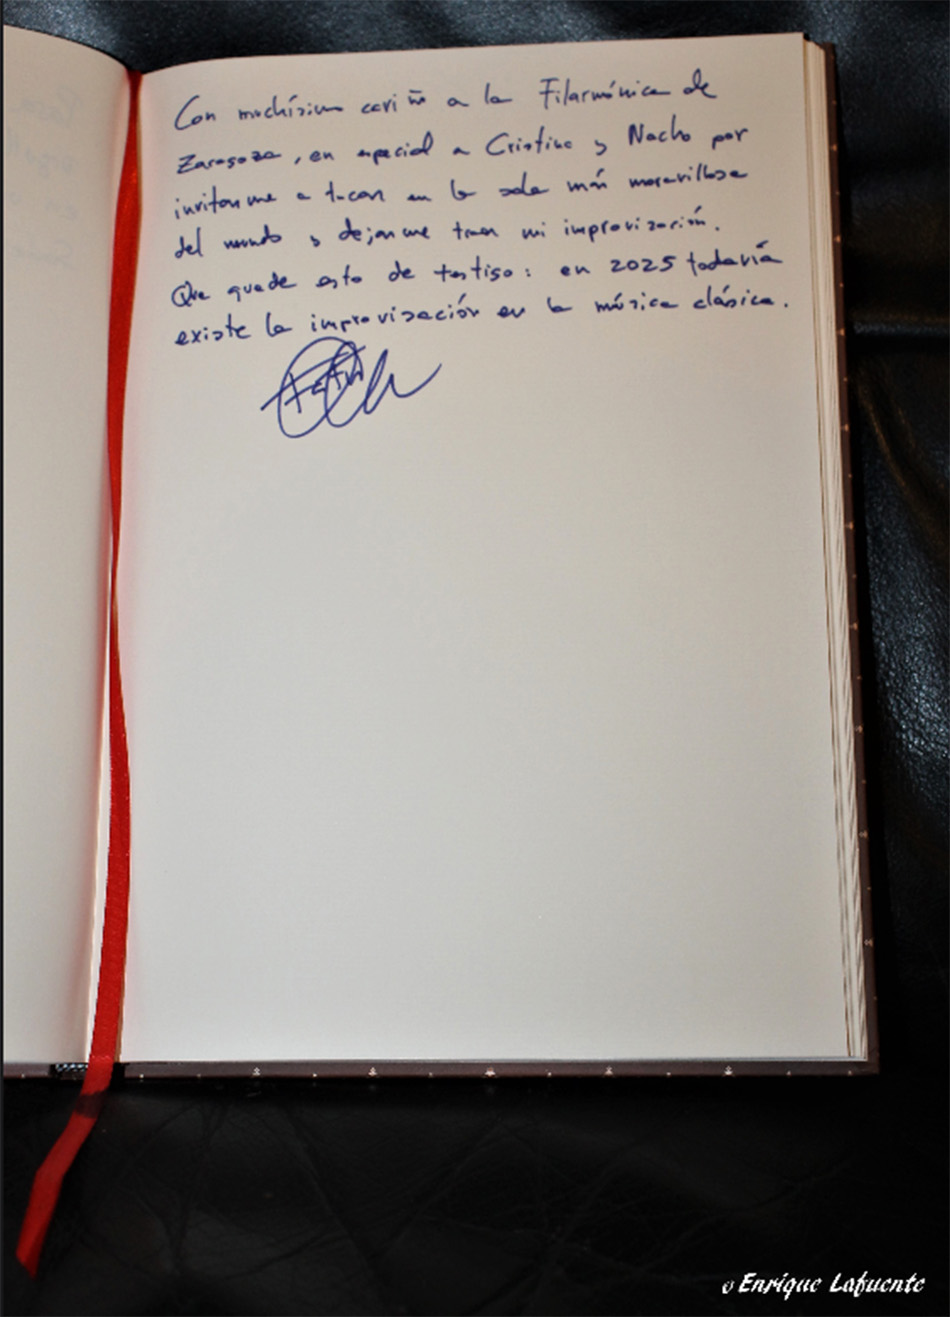 Con muchísimo cariño a la Filarmónica de
Zaragoza, en especial a Cristina y Nacho por
invitarme a tocar en la sala más maravillosa
del mundo y dejarme traer mi improvización.
Que quede esto de testigo: en 2025 todavía
existe la improvisación en la música clásica.
© Enrique Lafuente